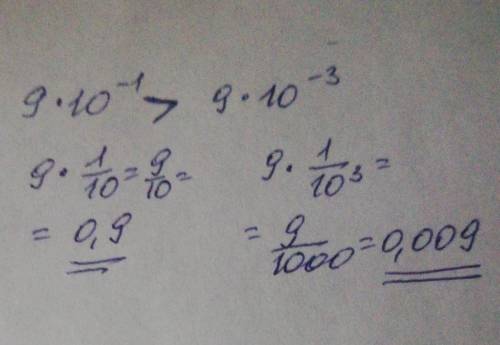 9 · 10⁻¹ > 9 · 10⁻³
9 · 1/10 = 9/10 =
= 0,9
9 · 1/10³ =
= 9/1000 = 0,009